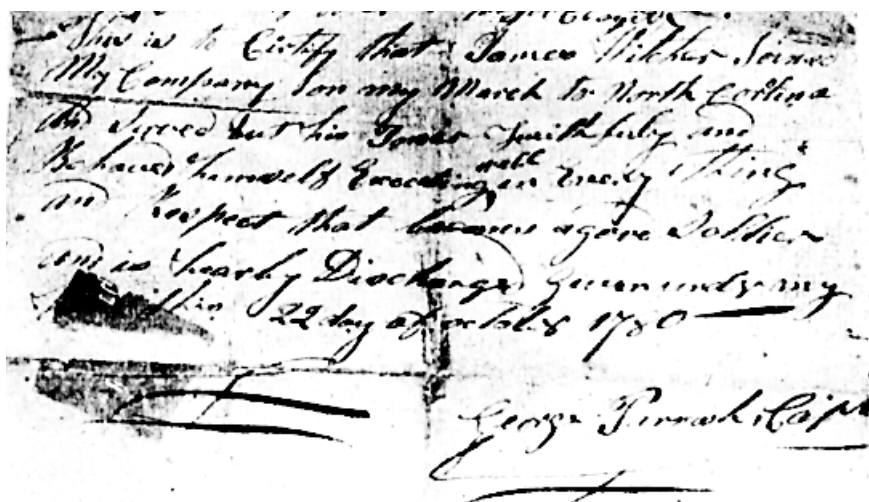 This is to Certify that James Wilcher Joined
My Company on my March to North Corlina
And Served out his Tower Faithfuly and
Behaved himself Exceeding well in Every Thing
and Respect that becomes a good Soldier
and is hearby Discharged Given under my
this 22 day of october 1780
George Capt